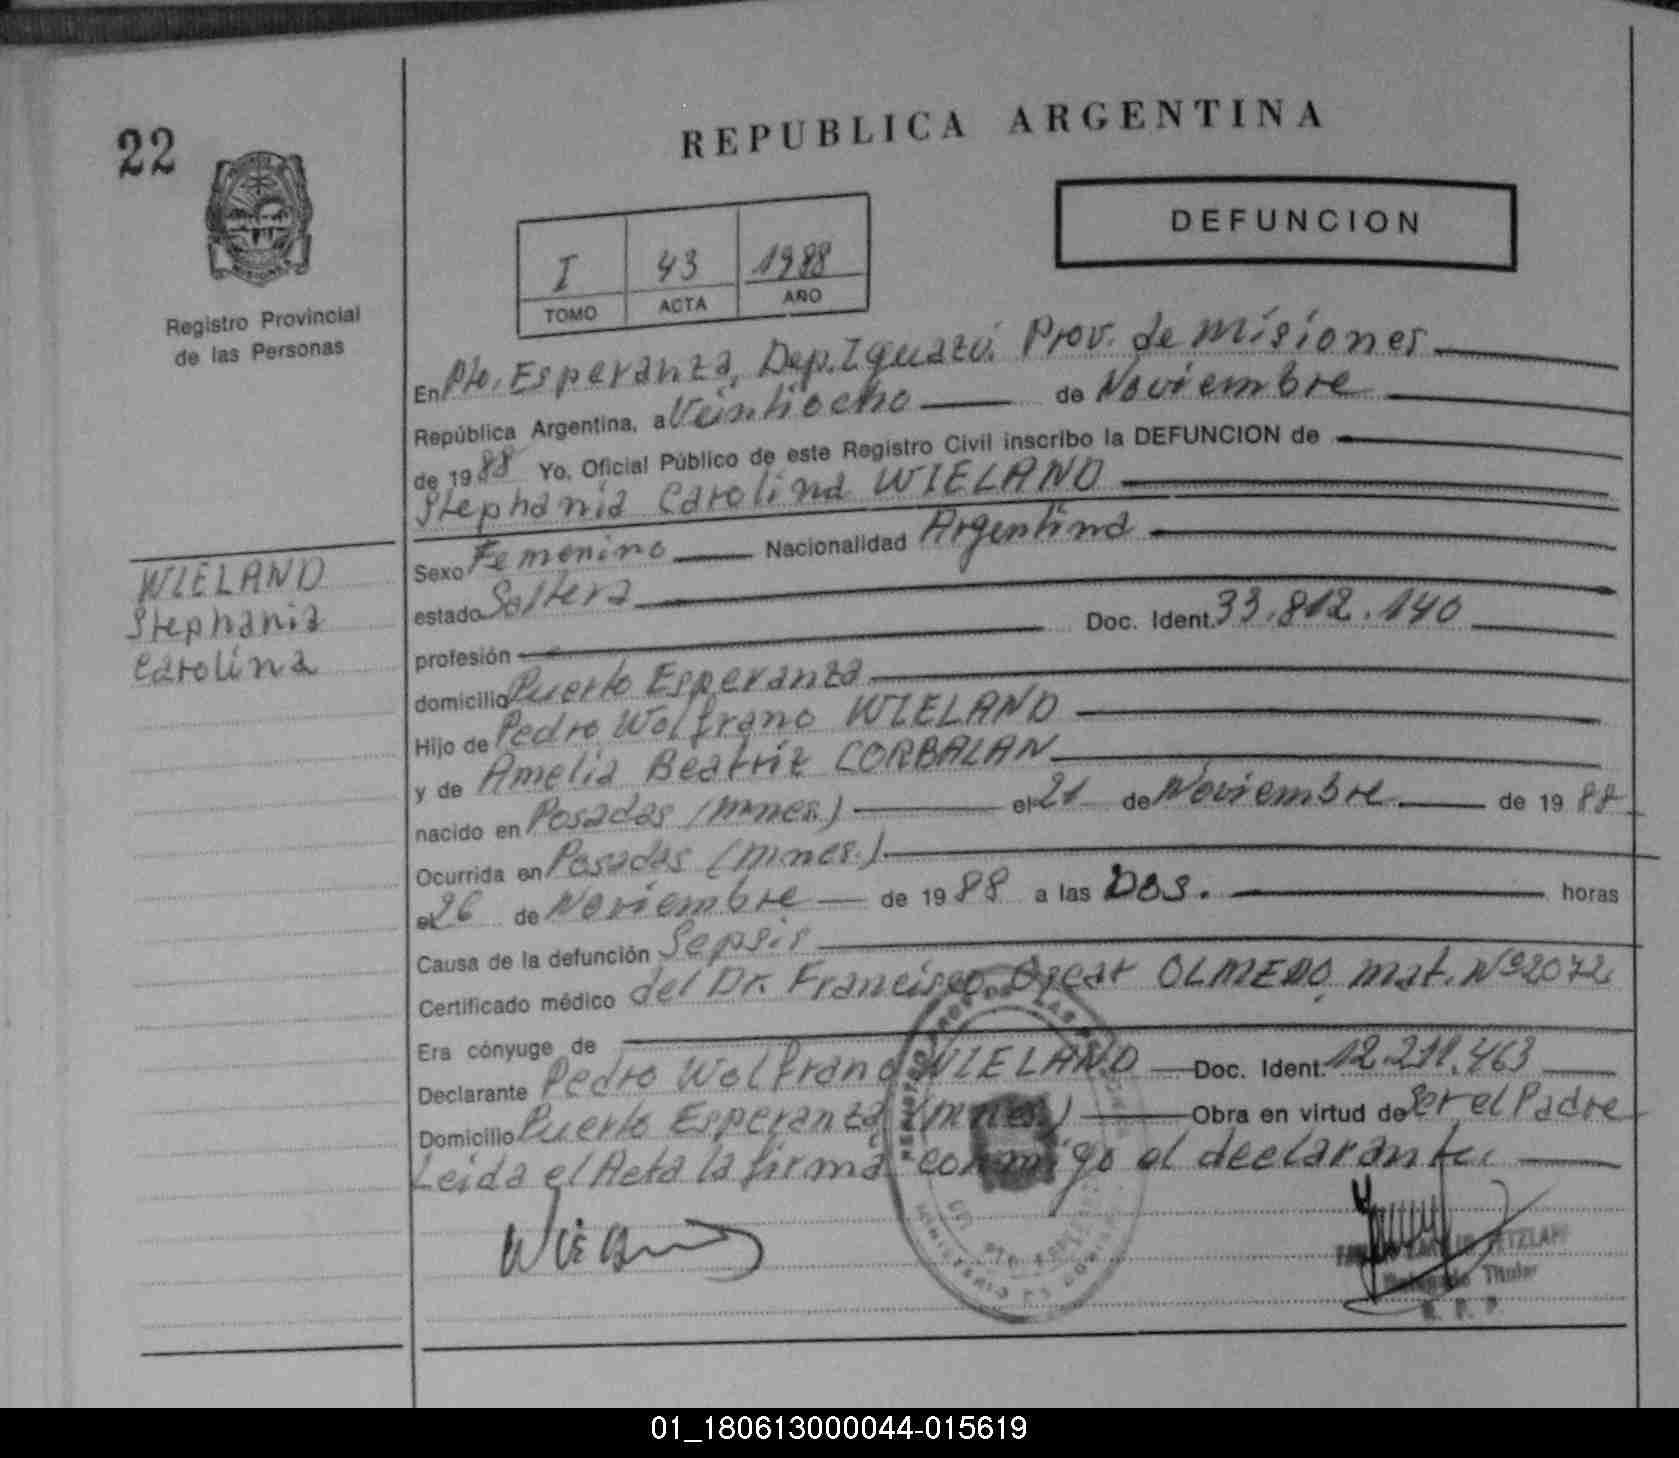 22
REPUBLICA ARGENTINA
DEFUNCION
I 43 1988
TOMO ACTA AÑO
Registro Provincial
de las Personas
En Pto. Esperanza, Dep. Iguazú. Prov. de Misiones
República Argentina, a Veintiocho de Noviembre
de 1988 Yo, Oficial Público de este Registro Civil inscribo la DEFUNCION de
Stephania Carolina WIELAND
WIELAND
Stephania
Carolina
Sexo Femenino Nacionalidad Argentina
estado Soltera
profesión Doc. Ident. 33.812.140
domicilio Puerto Esperanza
Hijo de Pedro Wolfrano WIELAND
y de Amelia Beatriz CORBALAN
nacido en Posadas (mnes.) el 21 de Noviembre de 1988
Ocurrida en Posadas (mnes.)
el 26 de Noviembre de 1988 a las Dos. horas
Causa de la defunción Sepsis
Certificado médico del Dr. Francisco Oscar OLMEDO, mat. Nº 2072
Era cónyuge de
Declarante Pedro Wolfrano WIELAND Doc. Ident. 12.211.463
Domicilio Puerto Esperanza (mnes.) Obra en virtud de Ser el Padre
Leida el Acta la firma conmigo el declarante.
Delegado Titular
R. P. P.
01_180613000044-015619